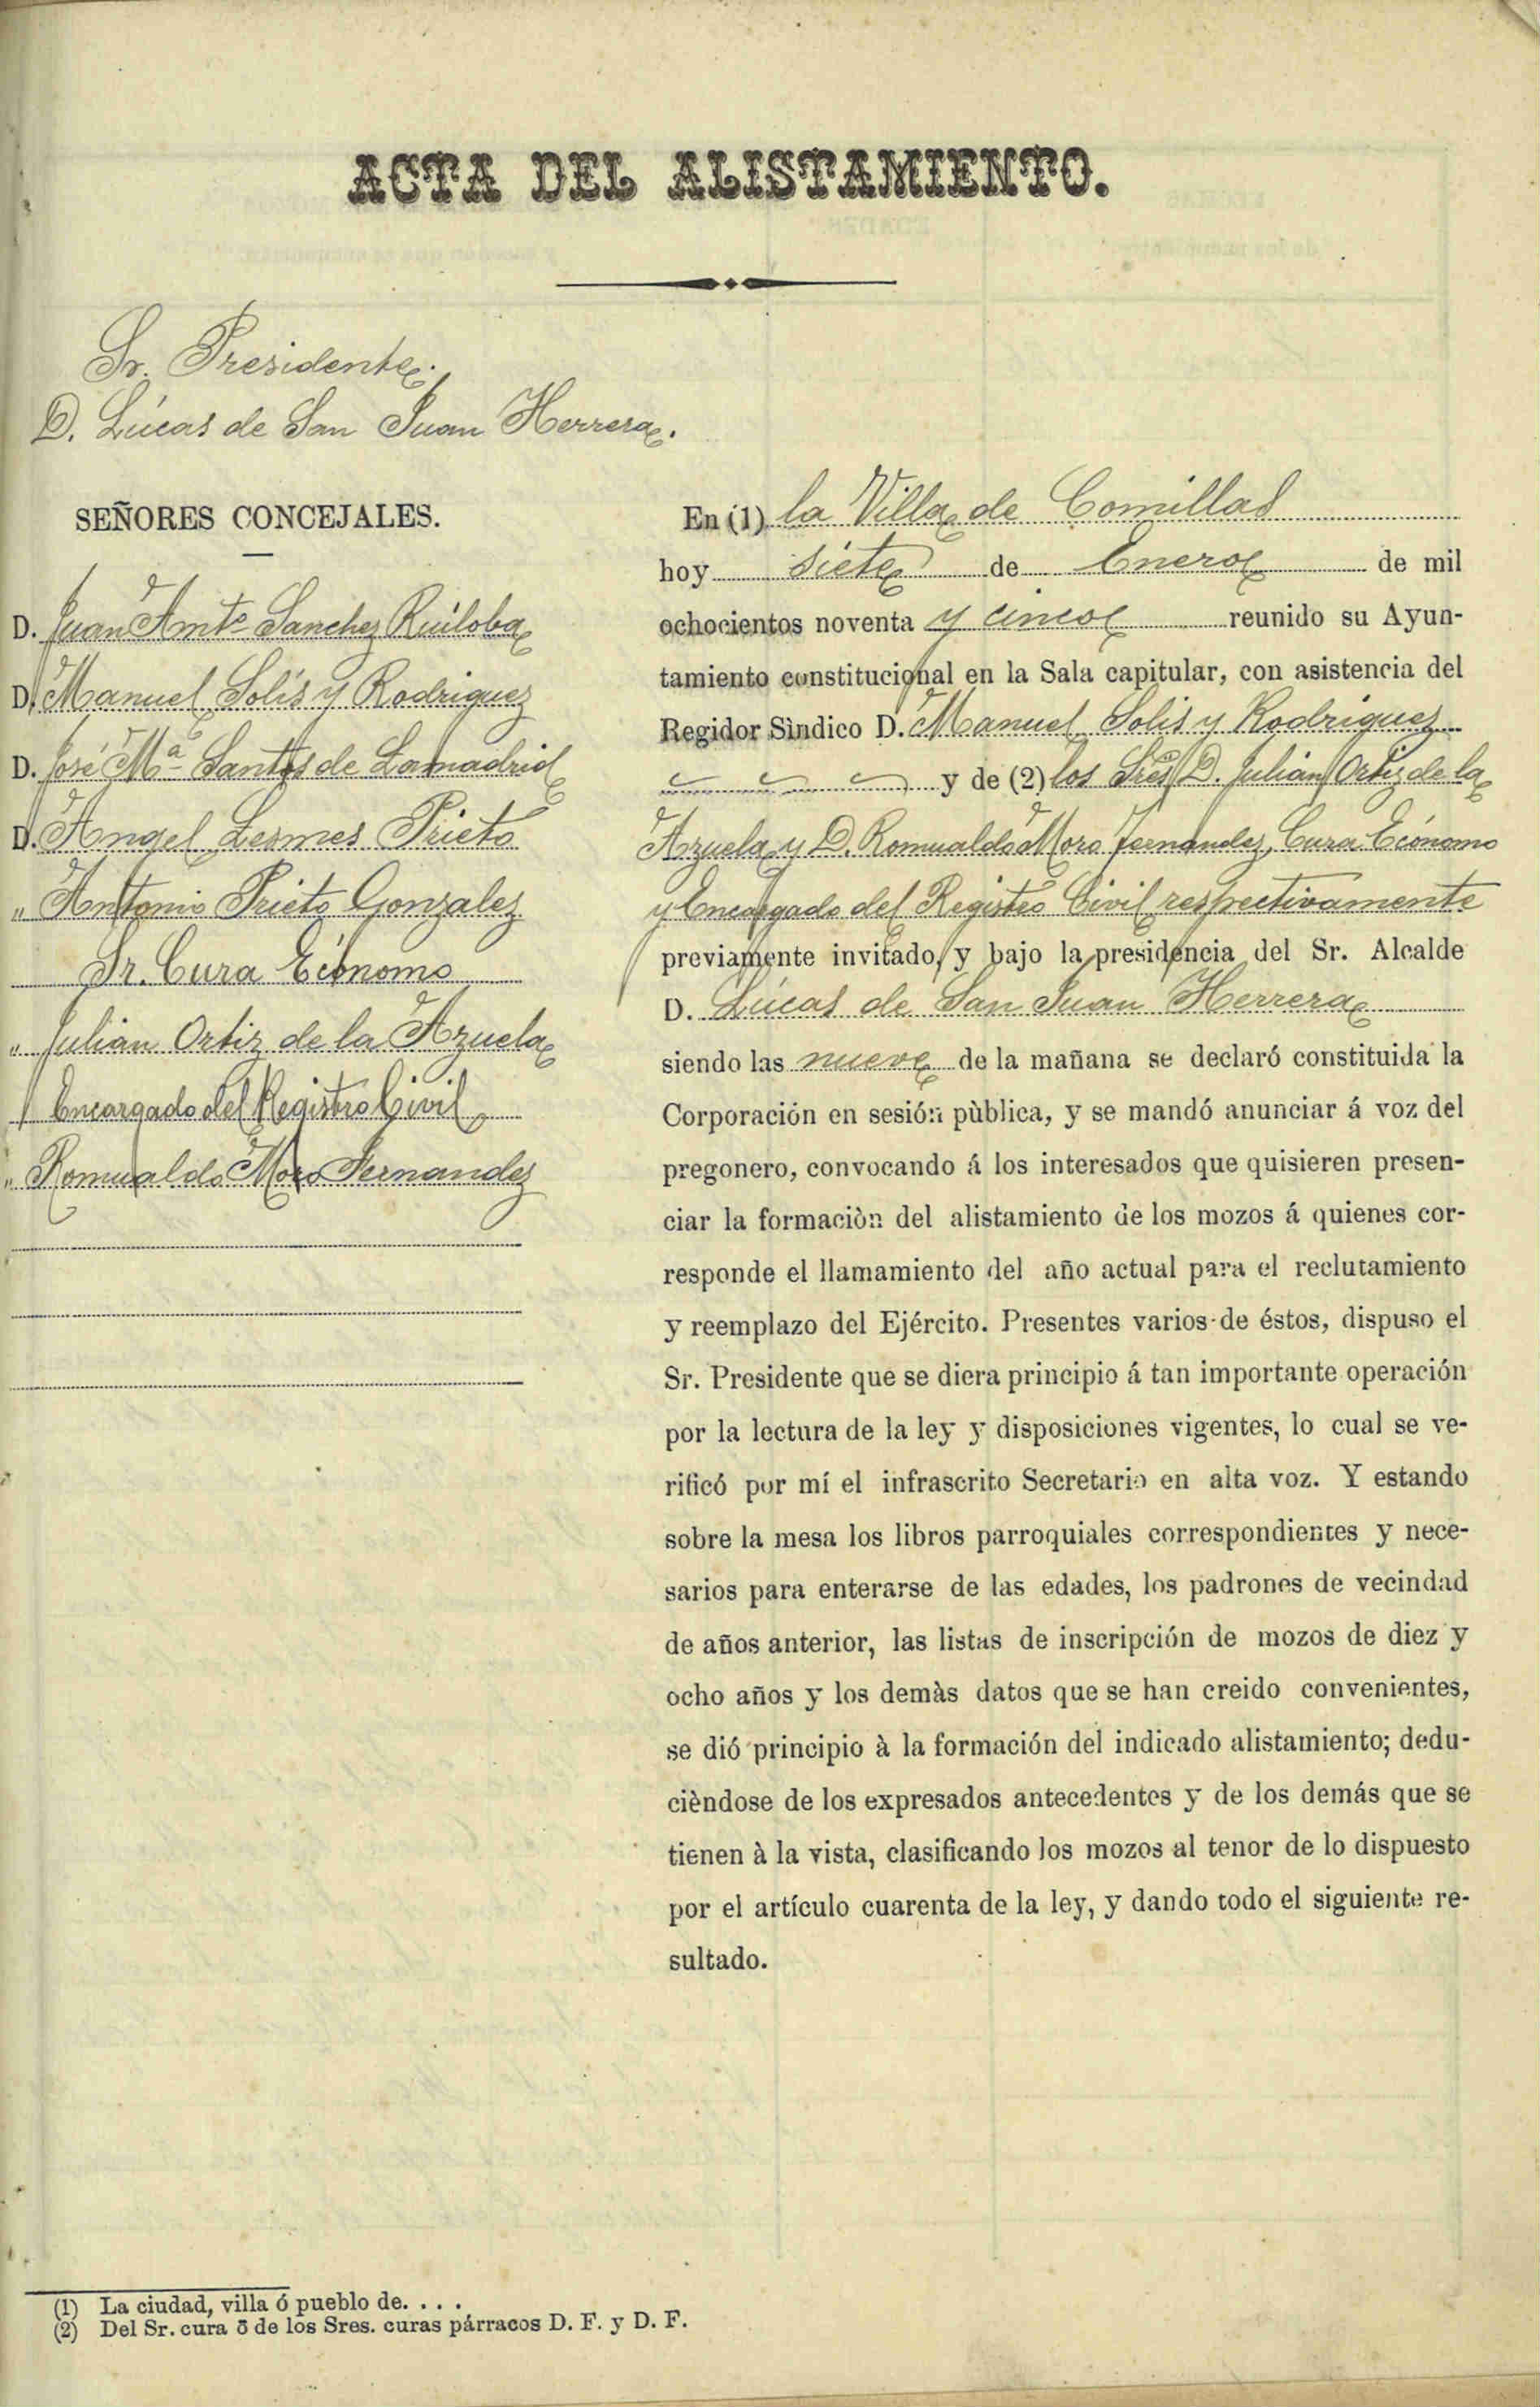 ACTA DEL ALISTAMIENTO.
Sr. Presidente.
D. Lúcas de San Juan Herrera.
SEÑORES CONCEJALES.
D. Juan Ant.º Sanchez Ruiloba
D. Manuel Solís y Rodriguez
D. José M.ª Santos de Lamadrid
D. Angel Lesmes Prieto
" Antonio Prieto Gonzalez
Sr. Cura Ecónomo
" Julian Ortiz de la Azuela
Encargado del Registro Civil
" Romualdo Moro Fernandez
En (1) la Villa de Comillas
hoy siete de Enero de mil
ochocientos noventa y cinco reunido su Ayun-
tamiento constitucional en la Sala capitular, con asistencia del
Regidor Sìndico D. Manuel Solis y Rodriguez
y de (2) los Sres D. Julián Ortiz de la
Azuela y D. Romualdo Moro Fernandez, Cura Ecónomo
y Encargado del Registro Civil respectivamente
previamente invitado, y bajo la presidencia del Sr. Alcalde
D. Lúcas de San Juan Herrera
siendo las nueve de la mañana se declaró constituida la
Corporación en sesión pùblica, y se mandó anunciar á voz del
pregonero, convocando á los interesados que quisieren presen-
ciar la formaciòn del alistamiento de los mozos á quienes cor-
responde el llamamiento del año actual para el reclutamiento
y reemplazo del Ejército. Presentes varios de éstos, dispuso el
Sr. Presidente que se diera principio á tan importante operación
por la lectura de la ley y disposiciones vigentes, lo cual se ve-
rificó por mí el infrascrito Secretario en alta voz. Y estando
sobre la mesa los libros parroquiales correspondientes y nece-
sarios para enterarse de las edades, los padrones de vecindad
de años anterior, las listas de inscripción de mozos de diez y
ocho años y los demàs datos que se han creido convenientes,
se dió principio à la formación del indicado alistamiento; dedu-
cièndose de los expresados antecedentes y de los demás que se
tienen à la vista, clasificando los mozos al tenor de lo dispuesto
por el artículo cuarenta de la ley, y dando todo el siguiente re-
sultado.
(1) La ciudad, villa ó pueblo de. . . .
(2) Del Sr. cura ó de los Sres. curas párracos D. F. y D. F.